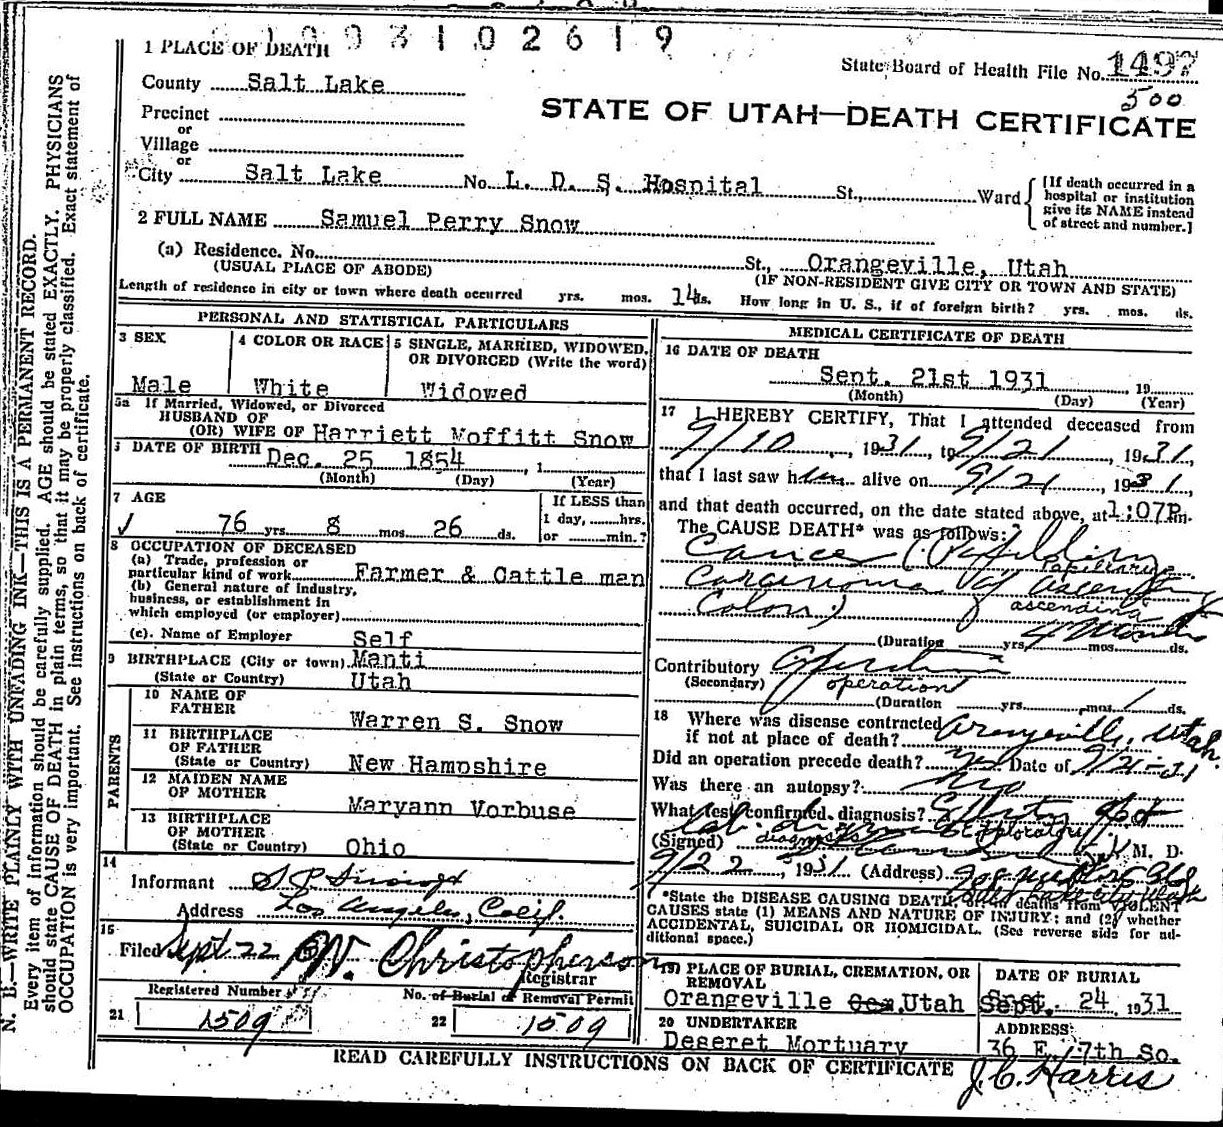 1003102619
1 PLACE OF DEATH
State Board of Health File No. 1497
500
County Salt Lake
STATE OF UTAH—DEATH CERTIFICATE
Precinct
or
Village
or
City Salt Lake No. L. D. S. Hospital St., Ward
[If death occurred in a hospital or institution give its NAME instead of street and number.]
2 FULL NAME Samuel Perry Snow
(a) Residence. No. St., Orangeville, Utah
(USUAL PLACE OF ABODE) (IF NON-RESIDENT GIVE CITY OR TOWN AND STATE)
Length of residence in city or town where death occurred yrs. mos. 14 ds. How long in U. S., if of foreign birth? yrs. mos. ds.
PERSONAL AND STATISTICAL PARTICULARS
3 SEX
Male
4 COLOR OR RACE
White
5 SINGLE, MARRIED, WIDOWED,
OR DIVORCED (Write the word)
Widowed
5a If Married, Widowed, or Divorced
HUSBAND OF
(OR) WIFE OF Harriett Moffitt Snow
6 DATE OF BIRTH Dec. 25 1854, 1
(Month) (Day) (Year)
7 AGE
76 yrs. 8 mos. 26 ds.
If LESS than
1 day, hrs.
or min.?
8 OCCUPATION OF DECEASED
(a) Trade, profession or
particular kind of work Farmer & Cattle man
(b) General nature of industry,
business, or establishment in
which employed (or employer)
(c). Name of Employer Self
9 BIRTHPLACE (City or town) Manti
(State or Country) Utah
PARENTS
10 NAME OF
FATHER Warren S. Snow
11 BIRTHPLACE
OF FATHER
(State or Country) New Hampshire
12 MAIDEN NAME
OF MOTHER Maryann Vorbuse
13 BIRTHPLACE
OF MOTHER
(State or Country) Ohio
14
Informant
Address Los Angeles, Calif.
15
Filed Sept 22 W. Christopherson
Registrar
Registered Number
21 1509
No. of Burial or Removal Permit
22 1509
MEDICAL CERTIFICATE OF DEATH
16 DATE OF DEATH
Sept. 21st 1931, 19
(Month) (Day) (Year)
17 I HEREBY CERTIFY, That I attended deceased from
9/10, 1931, to 9/21, 1931,
that I last saw him alive on 9/21, 1931,
and that death occurred, on the date stated above, at 1:07P.m.
The CAUSE DEATH* was as follows:
Cancer (Papillary
Papillary
Carcinoma of ascending
ascending
Colon)
(Duration yrs. 4 Months mos. ds.
Contributory Operation
(Secondary) operation
(Duration yrs. mos. 1 ds.
18 Where was disease contracted
if not at place of death? Orangeville, Utah.
Did an operation precede death? yes Date of 9/21-31
Was there an autopsy? No
What test confirmed diagnosis?
lab. diagnosis Exploratory
(Signed) M. D.
9/22, 1931 (Address)
*State the DISEASE CAUSING DEATH, and deaths from VIOLENT
CAUSES state (1) MEANS AND NATURE OF INJURY; and (2) whether
ACCIDENTAL, SUICIDAL OR HOMICIDAL. (See reverse side for ad-
ditional space.)
19 PLACE OF BURIAL, CREMATION, OR
REMOVAL
Orangeville Cem. Utah
DATE OF BURIAL
Sept. 24, 1931
20 UNDERTAKER
Deseret Mortuary
ADDRESS
36 E. 7th So.
READ CAREFULLY INSTRUCTIONS ON BACK OF CERTIFICATE
J. C. Harris
N. B.—WRITE PLAINLY WITH UNFADING INK—THIS IS A PERMANENT RECORD.
Every item of information should be carefully supplied. AGE should be stated EXACTLY. PHYSICIANS
should state CAUSE OF DEATH in plain terms, so that it may be properly classified. Exact statement of
OCCUPATION is very important. See instructions on back of certificate.